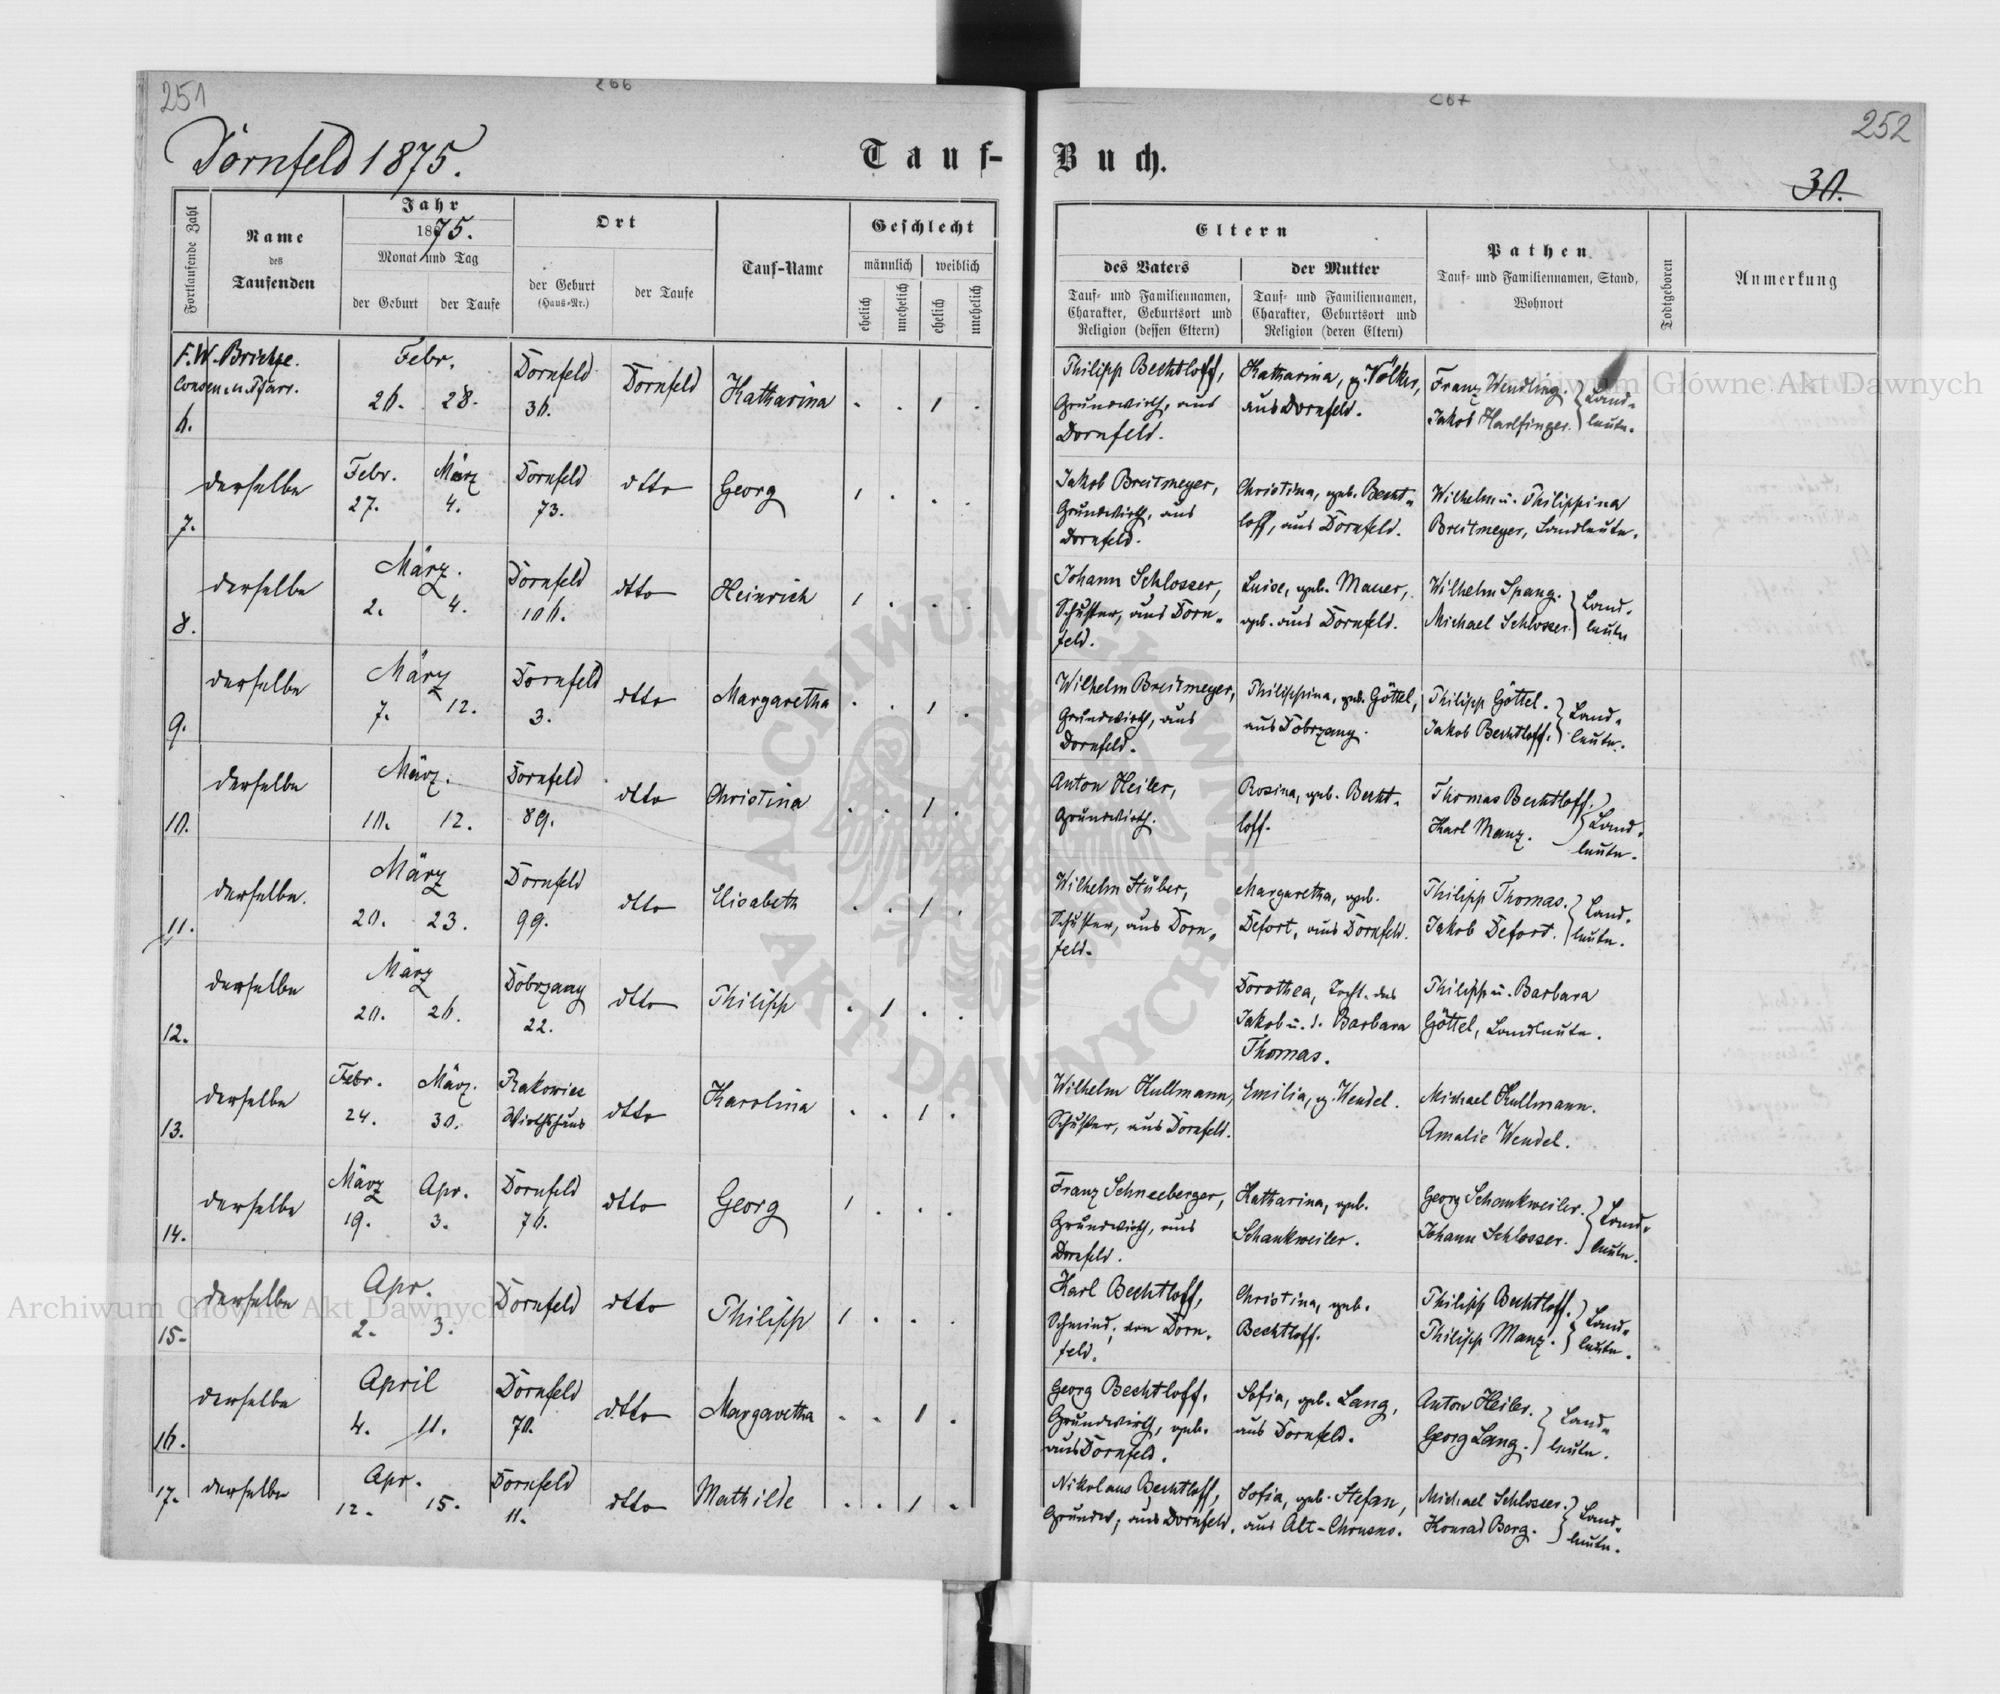 251
266
Dornfeld 1875.
Tauf-
Fortlaufende Zahl
Name
des
Taufenden
Jahr
1875.
Monat und Tag
der Geburt
der Taufe
Ort
der Geburt
(Haus-Nr.)
der Taufe
Tauf-Name
Geschlecht
männlich
weiblich
ehelich
unehelich
ehelich
unehelich
F.W. Brichze.
Consen. u. Pfarr.
6.
Febr.
26. 28.
Dornfeld
36.
Dornfeld
Katharina
. . 1 .
derselbe
7.
Febr. März
27. 4.
Dornfeld
73.
dtto
Georg
1 . . .
derselbe
8.
März.
2. 4.
Dornfeld
106.
dtto
Heinrich
1 . . .
derselbe
9.
März
7. 12.
Dornfeld
3.
dtto
Margaretha
. . 1 .
derselbe
10.
März.
10. 12.
Dornfeld
89.
dtto
Christina
. . 1 .
derselbe.
11.
März
20. 23.
Dornfeld
99.
dtto
Elisabeth
. . 1 .
derselbe
12.
März
20. 26.
Dobrzany
22.
dtto
Philipp
. 1 . .
derselbe
13.
Febr. März.
24. 30.
Rakowiec
Wirthshaus
dtto
Karolina
. . 1 .
derselbe
14.
März Apr.
19. 3.
Dornfeld
76.
dtto
Georg
1 . . .
derselbe
15.
Apr.
2. 3.
Dornfeld
dtto
Philipp
1 . . .
derselbe
16.
April
4. 11.
Dornfeld
70.
dtto
Margaretha
. . 1 .
17. derselbe
Apr.
12. 15.
Dornfeld
11.
dtto
Mathilde
. . 1 .
267
252
Buch.
30.
Eltern
des Vaters
Tauf- und Familiennamen,
Charakter, Geburtsort und
Religion (dessen Eltern)
der Mutter
Tauf- und Familiennamen,
Charakter, Geburtsort und
Religion (deren Eltern)
Pathen
Tauf- und Familiennamen, Stand,
Wohnort
Todtgeboren
Anmerkung
Philipp Bechtloff,
Grundwirth, aus
Dornfeld.
Katharina, g. Völker,
aus Dornfeld.
Franz Wendling.
Jakob Harlfinger.
Land-
leute.
Jakob Breitmeyer,
Grundwirth, aus
Dornfeld.
Christina, geb. Becht-
loff, aus Dornfeld.
Wilhelm u. Philippina
Breitmeyer, Landleute.
Johann Schlosser,
Schuster, aus Dorn-
feld.
Luise, geb. Mauer,
geb. aus Dornfeld.
Wilhelm Spang.
Michael Schlosser.
Land-
leute
Wilhelm Breitmeyer,
Grundwirth, aus
Dornfeld.
Philippina, geb. Göttel,
aus Dobrzany.
Philipp Göttel.
Jakob Bechtloff.
Land-
leute.
Anton Heiler,
Grundwirth.
Rosina, geb. Becht-
loff.
Thomas Bechtloff.
Karl Manz.
Land-
leute.
Wilhelm Stüber,
Schuster, aus Dorn-
feld.
Margaretha, geb.
Defort, aus Dornfeld.
Philipp Thomas.
Jakob Defort.
Land-
leute.
Dorothea, Tocht. des
Jakob u. d. Barbara
Thomas.
Philipp u. Barbara
Göttel, Landleute.
Wilhelm Kullmann,
Schuster, aus Dornfeld.
Emilia, g. Wendel.
Michael Kullmann.
Amalie Wendel.
Franz Schneeberger,
Grundwirth, aus
Dornfeld.
Katharina, geb.
Schankweiler.
Georg Schankweiler.
Johann Schlosser.
Land-
leute.
Karl Bechtloff,
Schmied, von Dorn-
feld.
Christina, geb.
Bechtloff.
Philipp Bechtloff.
Philipp Manz.
Land-
leute.
Georg Bechtloff,
Grundwirth, geb.
aus Dornfeld.
Sofia, geb. Lang,
aus Dornfeld.
Anton Heiler.
Georg Lang.
Land-
leute.
Nikolaus Bechtloff,
Grundw, aus Dornfeld.
Sofia, geb. Stefan,
aus Alt-Chrusno.
Michael Schlosser.
Konrad Berg.
Land-
leute.
Archiwum Główne Akt Dawnych
Archiwum Główne Akt Dawnych
ARCHIWUM GŁÓWNE
AKT DAWNYCH